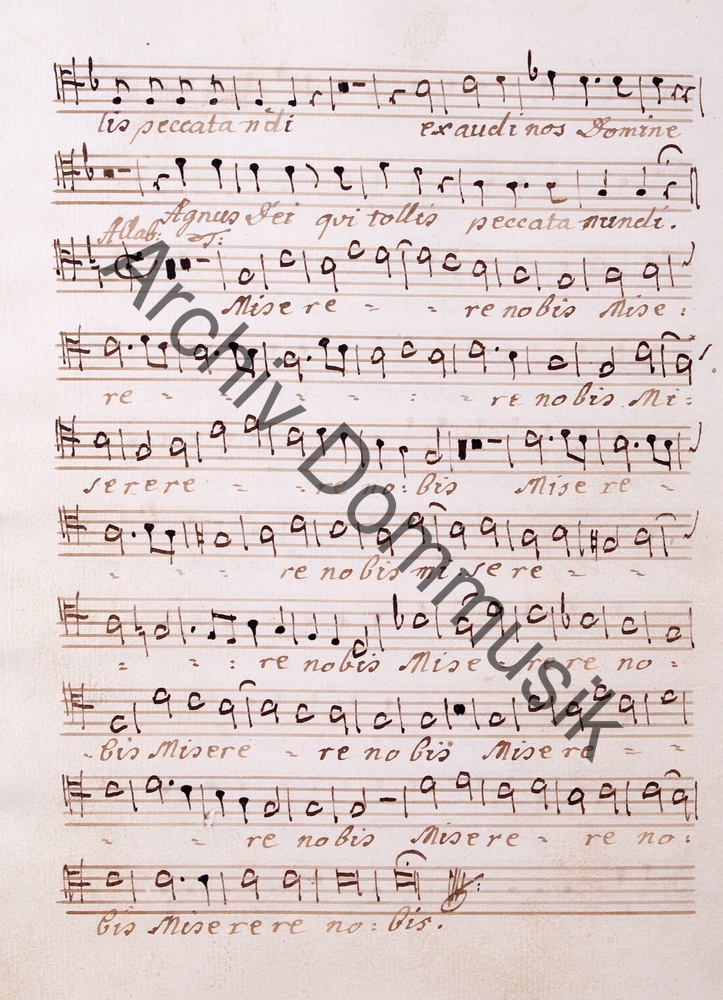 lis peccata mdi exaudi nos Domine
Agnus Dei qui tollis peccata mundi.
Allab:
Misere re = = re nobis Mise:
re = = = = : = re nobis Mi:
serere re = = o:bis Mise re =
= = = re nobis mi se re = =
= = : re nobis Mise re re no =
bis Misere = re no bis Misere = =
= = re nobis Misere = re no:
bis Miserere re no:bis.
Archiv Dommusik